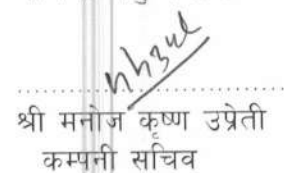 श्री मनोज कृष्ण उप्रेती
कम्पनी सचिव